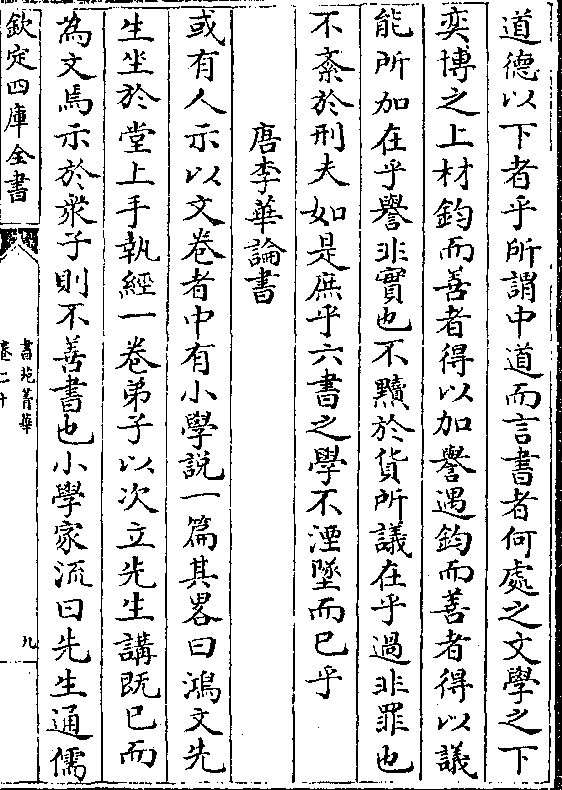 道德以下者乎所謂中道而言書者何處之文學之下
奕博之上材鈞而善者得以加譽遇鈞而善者得以議
能所加在乎譽非實也不黷於貨所議在乎過非罪也
不紊於刑夫如是庶乎六書之學不湮墜而已乎
唐李華論書
或有人示以文卷者中有小學說一篇其畧曰鴻文先
生坐於堂上手執經一卷弟子以次立先生講既已而
為文焉示於衆子則不善書也小學家流曰先生通儒
欽定四庫全書
書苑菁華
卷二十
九